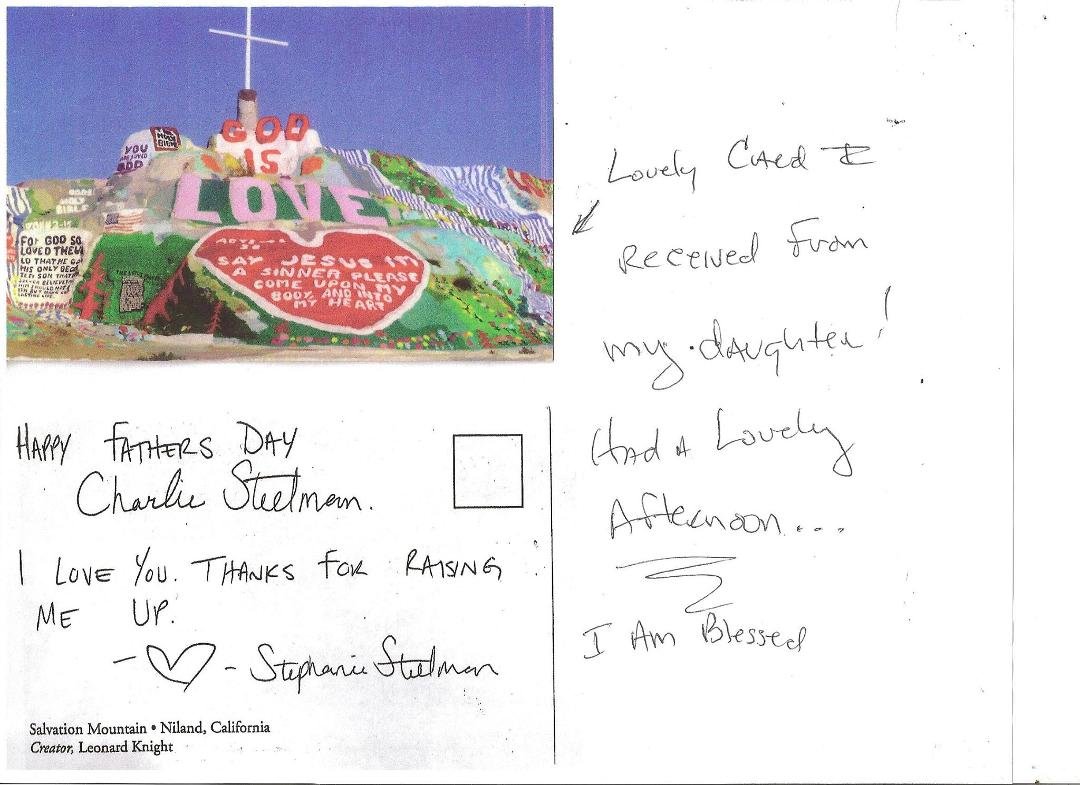 GOD
IS
LOVE
YOU
GOD
HOLY
BIBLE
FOR GOD SO
LOVED THE W
LD THAT HE GA
HIS ONLY BEG
TEN SON THAT
ACTS
SAY JESUS IM
A SINNER PLEASE
COME UPON MY
BODY AND INTO
MY HEART
HAPPY FATHERS DAY
Charlie Steelman.
I LOVE YOU. THANKS FOR RAISING
ME UP.
- Stephanie Steelman
Salvation Mountain • Niland, California
Creator, Leonard Knight
Lovely Card I
received from
my daughter!
Had a Lovely
Afternoon...
I Am Blessed